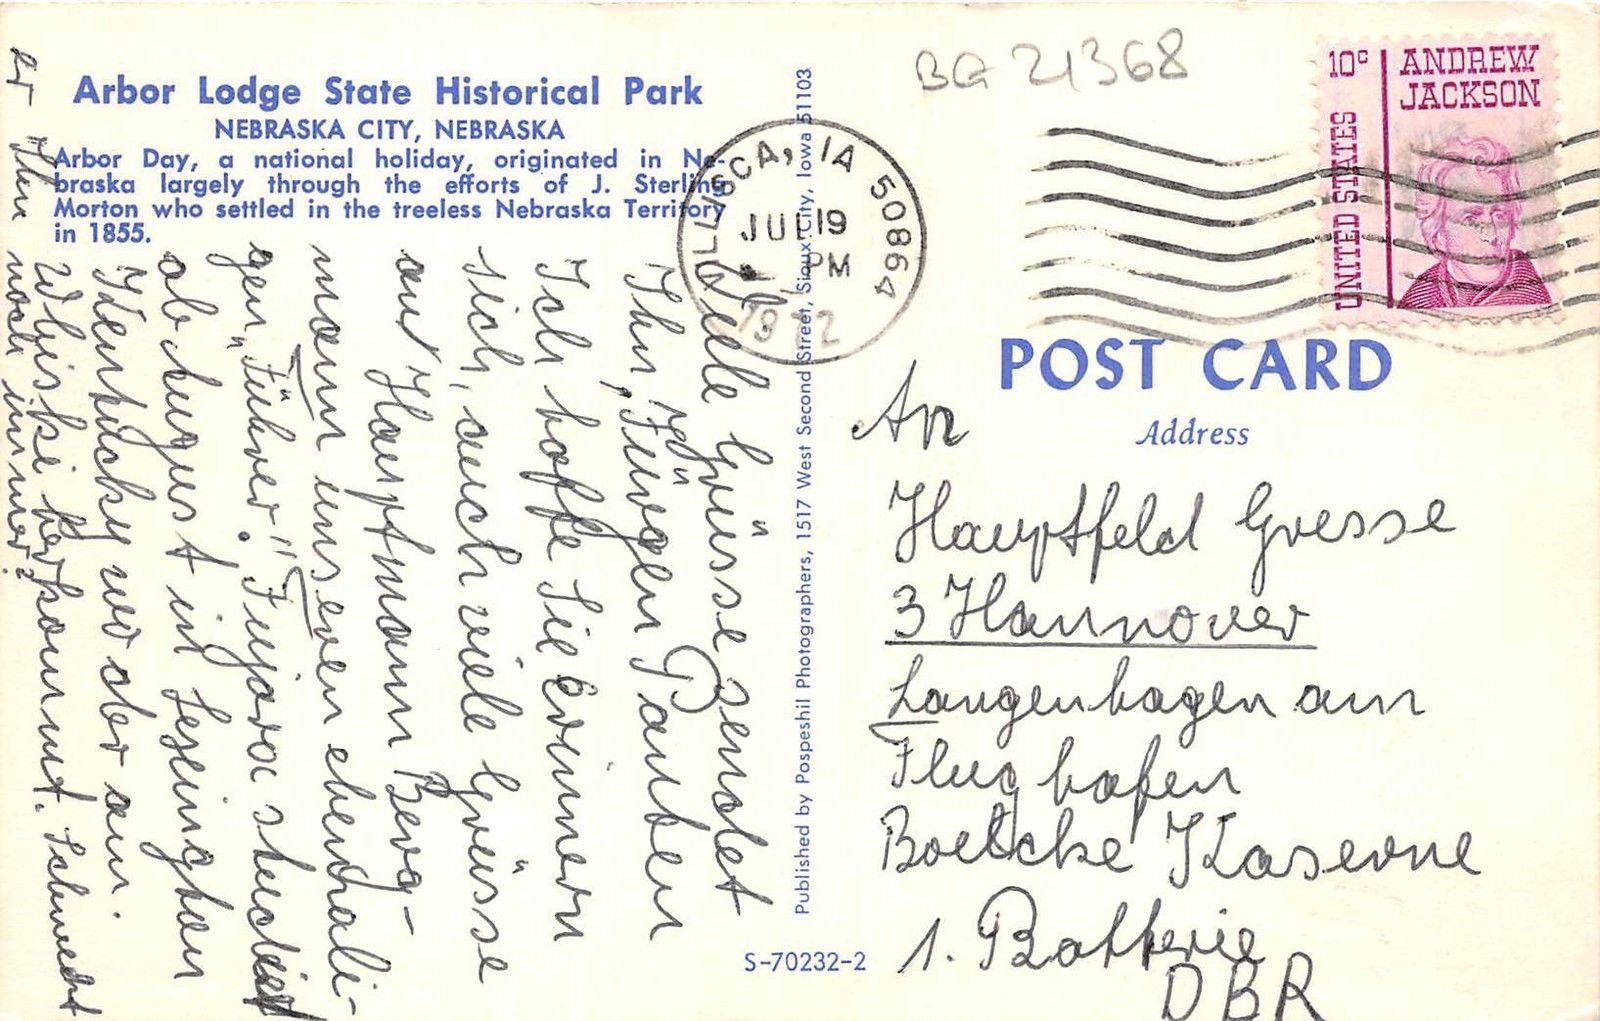 Arbor Lodge State Historical Park
NEBRASKA CITY, NEBRASKA
Arbor Day, a national holiday, originated in Ne-
braska largely through the efforts of J. Sterling
Morton who settled in the treeless Nebraska Territory
in 1855.
Viele Grüsse sendet
Ihn, Jürgen Panten
Ich hoffe Sie erinnern
sich, auch viele Grüsse
an Hauptmann Berg-
mann unseren ehemali-
gen "Führer." Jujara studiert
ab August in Lexington
Kentucky wo der am.
Whiskie herkommt. Schmeckt
er Ihn
noch immer?
Published by Pospeshil Photographers, 1517 West Second Street, Sioux City, Iowa 51103
S-70232-2
BG 21368
VILLISCA, IA 50864
JUL 19
PM
1972
10c
ANDREW
JACKSON
UNITED STATES
POST CARD
Address
An
Hauptfeld Gresse
3 Hannover
Langenhagen am
Flughafen
Boelcke Kaserne
1. Batterie
DBR